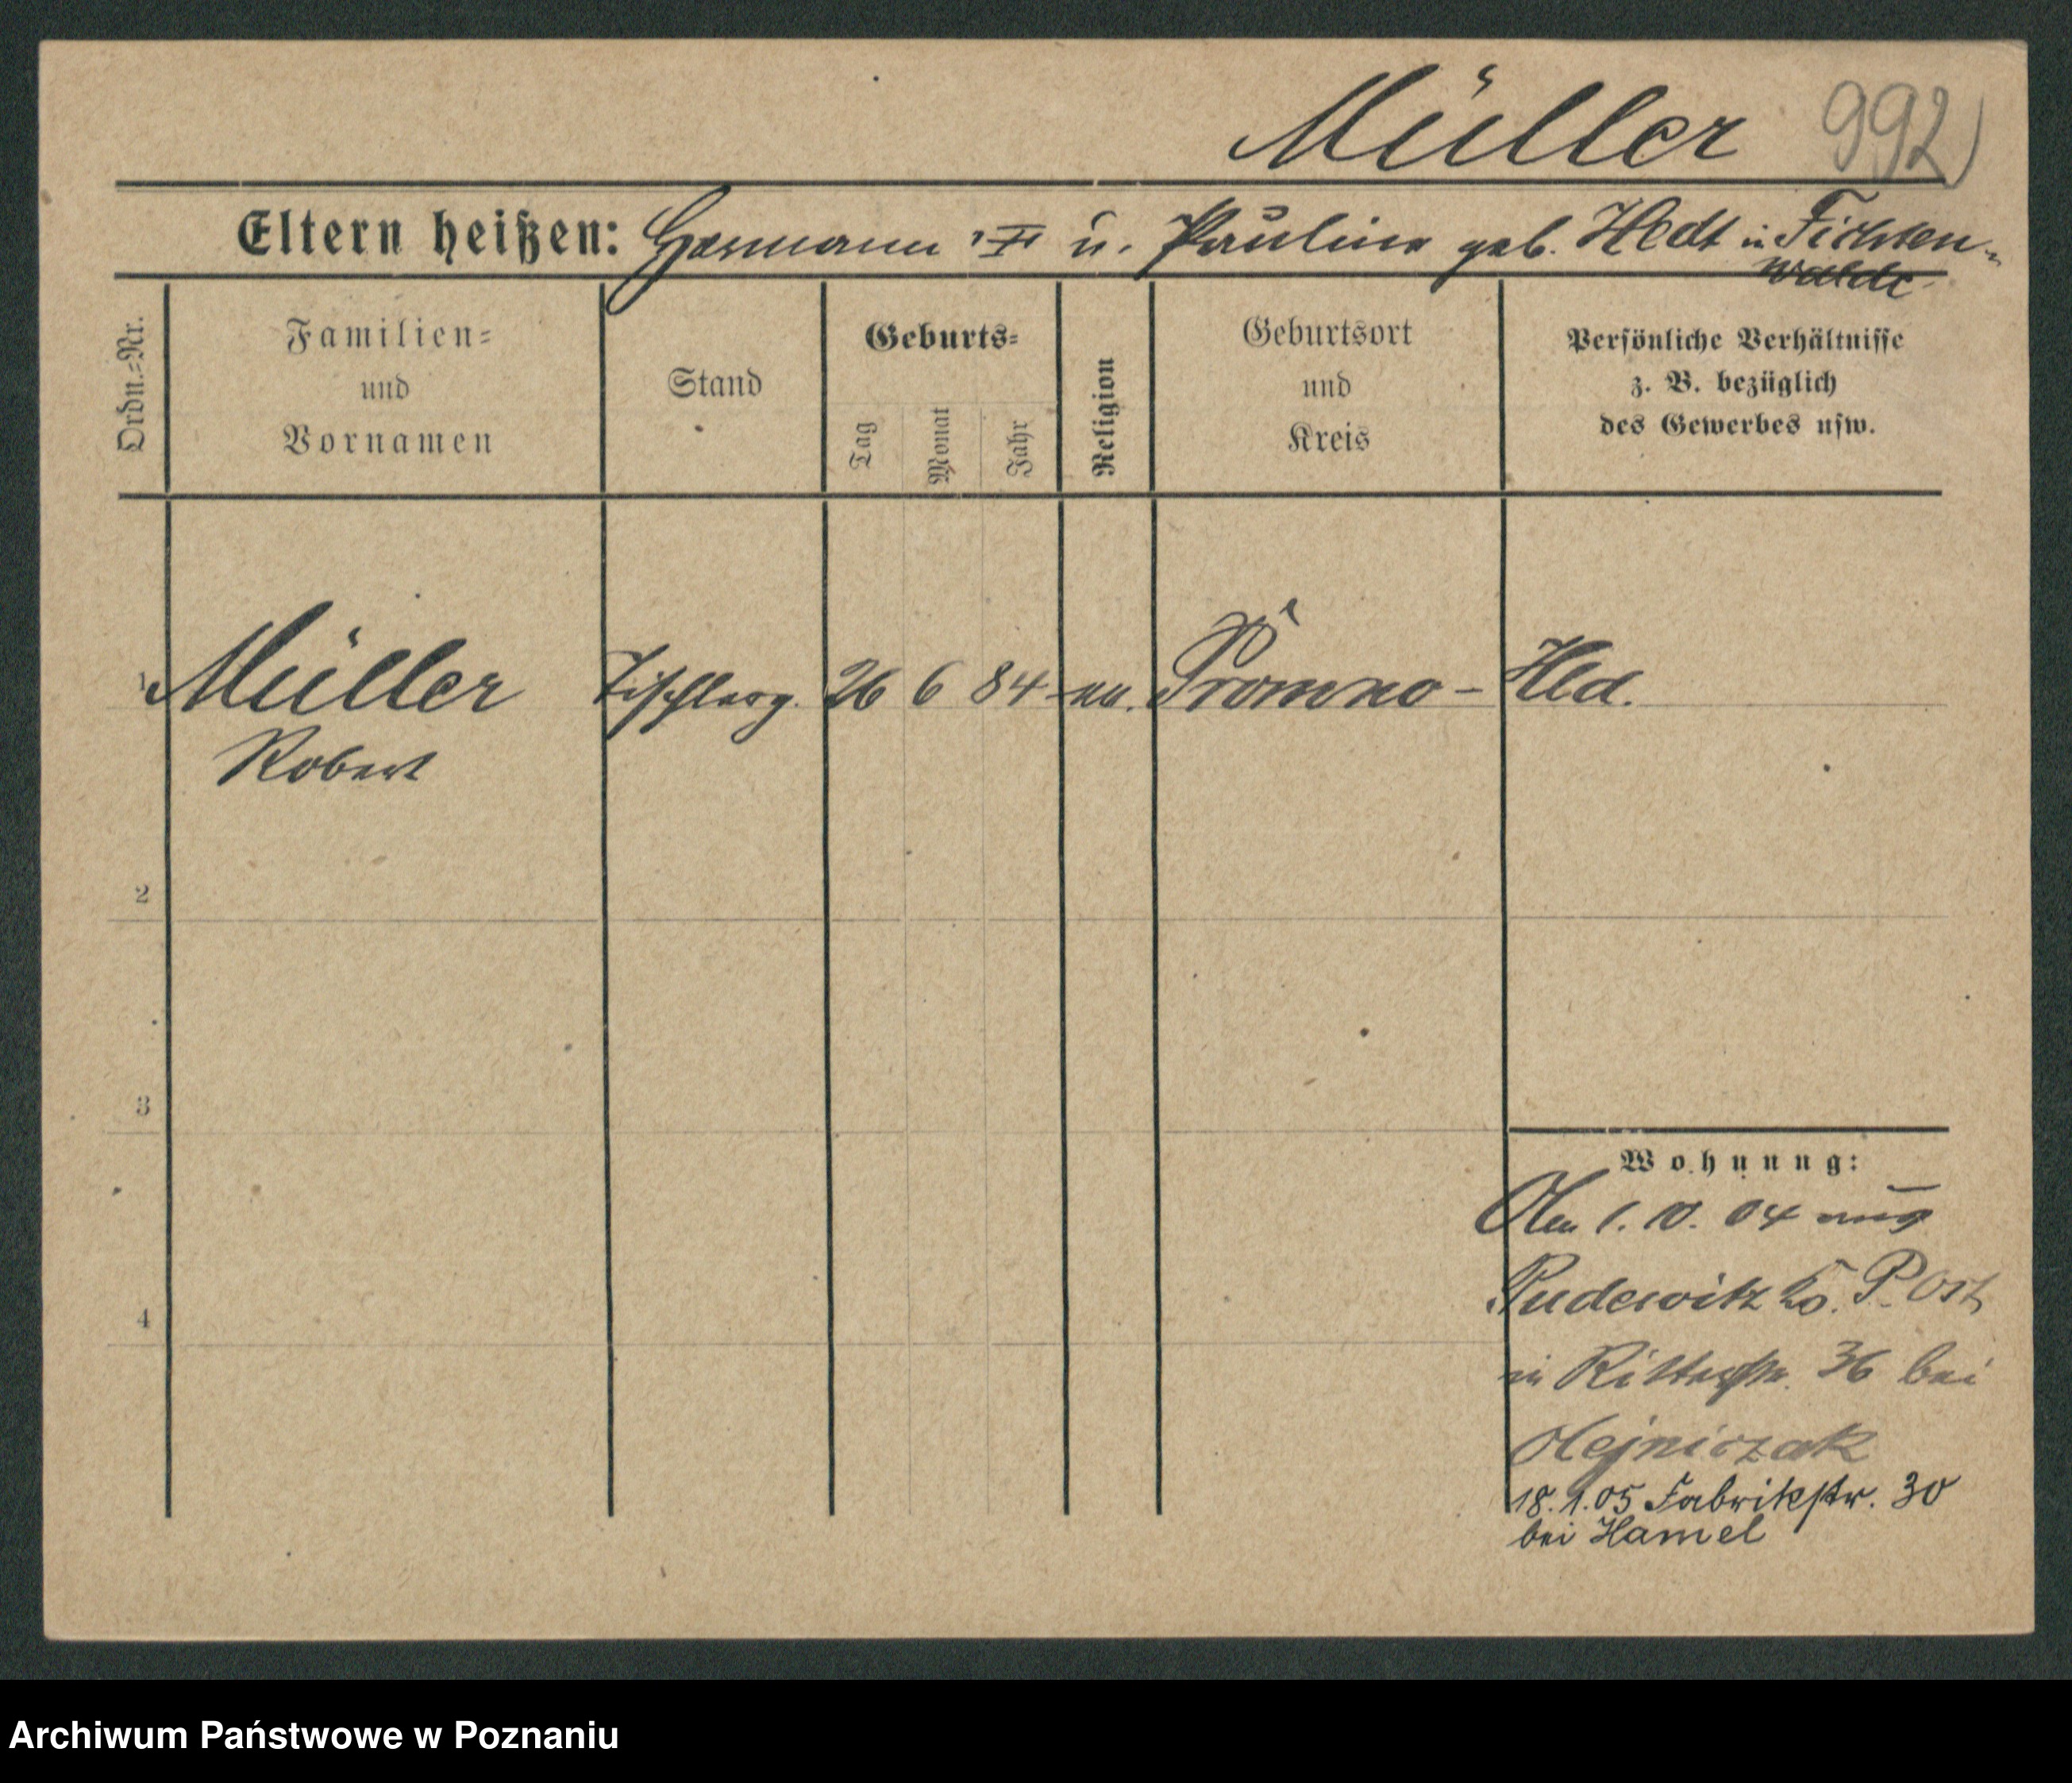 Müller 992
Eltern heißen: Hermann u. Pauline geb. Hedt in Fichten-
walde
Ordn.-Nr.
Familien-
und
Vornamen
Stand
Geburts-
Tag
Monat
Jahr
Religion
Geburtsort
und
Kreis
Persönliche Verhältnisse
z. B. bezüglich
des Gewerbes usw.
1 Müller Tischlerg. 26 6 84 Promno - Hld.
Robert
2
3
4
Wohnung:
1. 10. 04
Pudewitz Kr. P. Ost
in Ritterstr. 36 bei
Olejniczak
18. 1. 05 Fabrikstr. 30
bei Hamel
Archiwum Państwowe w Poznaniu